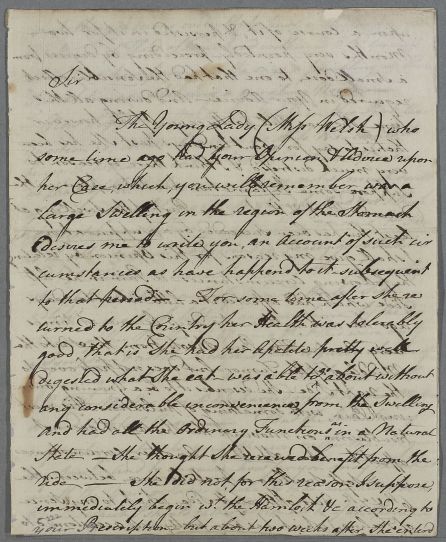 Sir
The Young Lady (Miss Welsh) who
some time ago had your Opinion & Advice upon
her Case which you will remember was a
large Swelling in the region of the Stomach
desires me to write you an account of such cir
cumstances as have happend to it subsequent
to that period — For some time after She re
turned to the Country her Health was tolerably
good that is She had her Apetite pretty well
digested what She eat was able to about without
any considerable inconvenience from the Swelling
and had all the Ordinary Functions in a Natural
State — She thought She received benefit from the
ride — She did not for this reason I suppose
immediately begin wt. the Hemlock &c according to
your Prescription but about two weeks after She entered